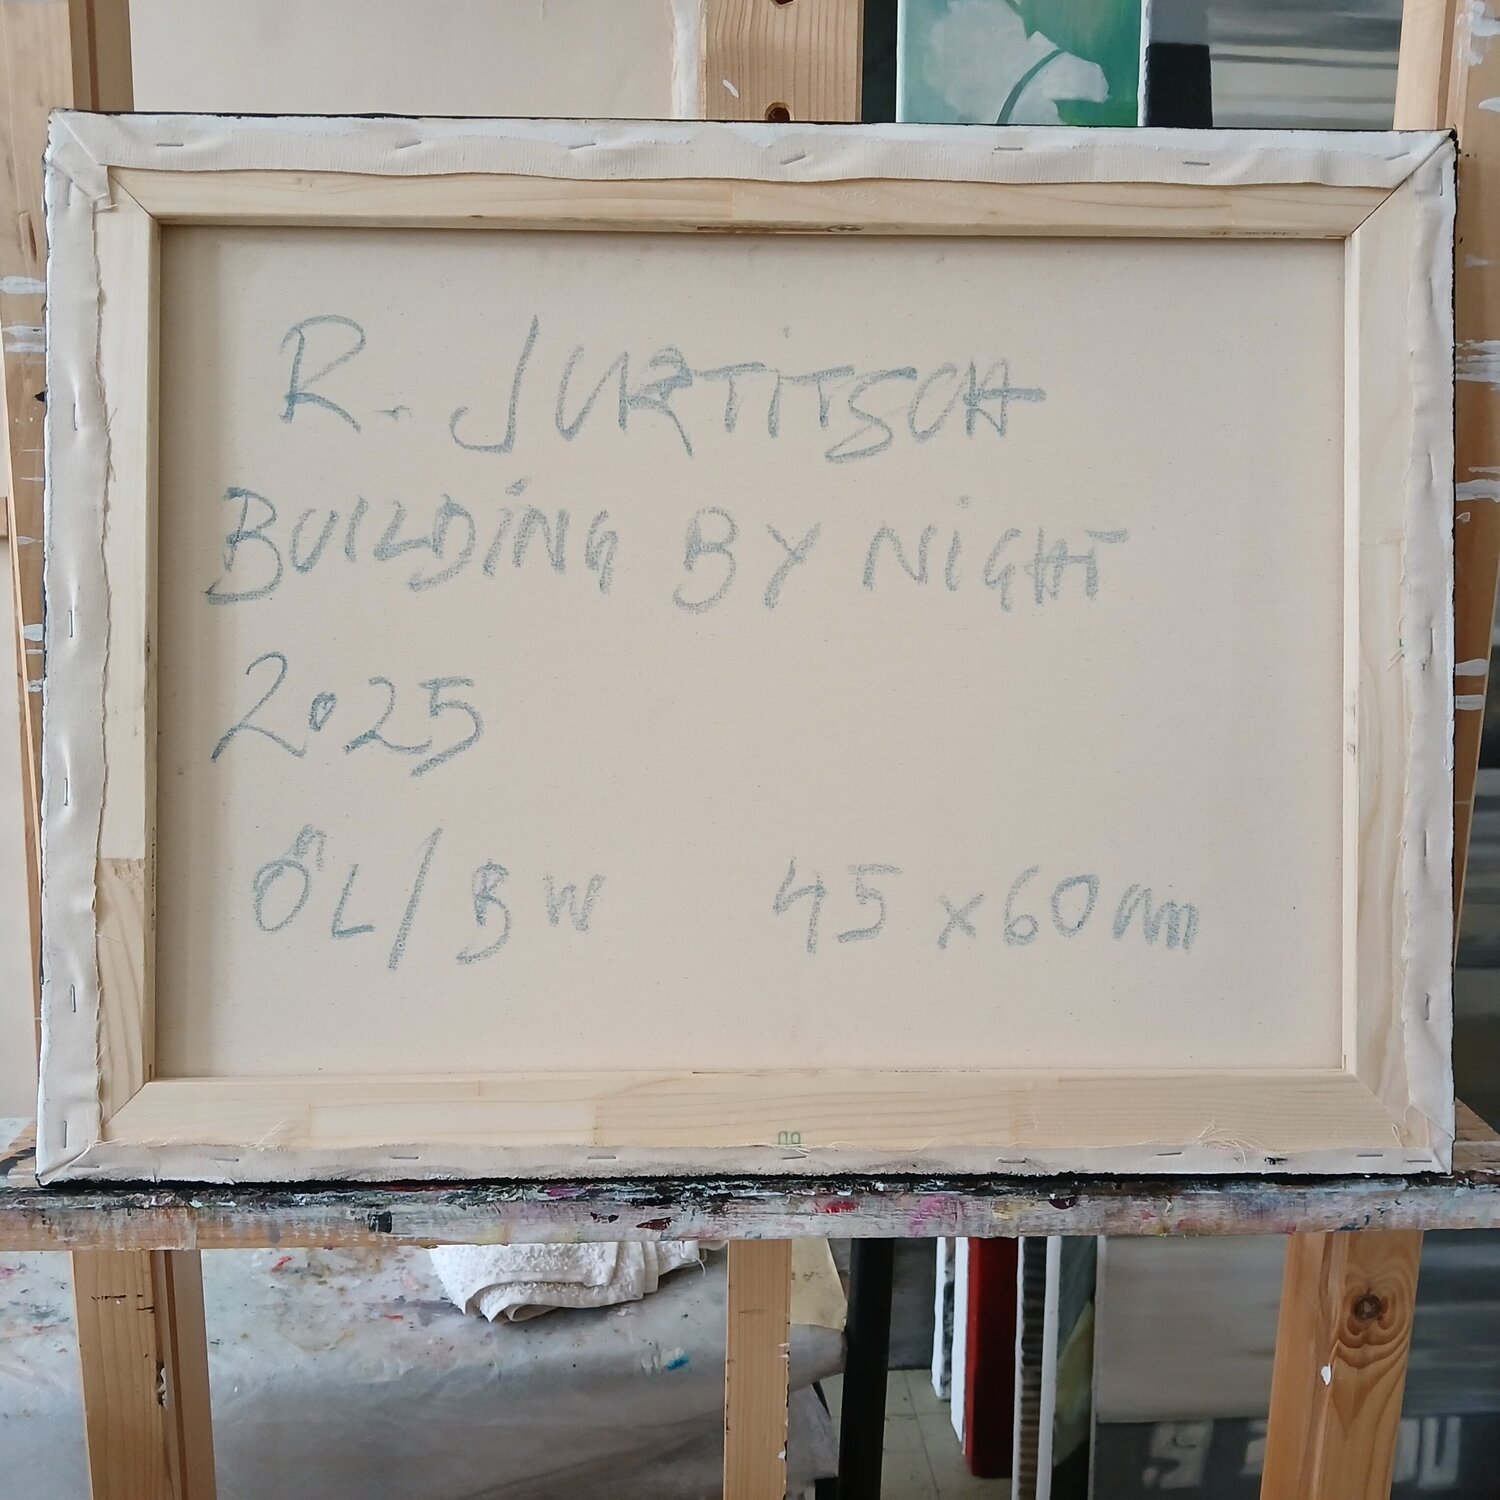 R. JURTITSCH
BUILDING BY NIGHT
2025
ÖL/BW 45 x 60 cm